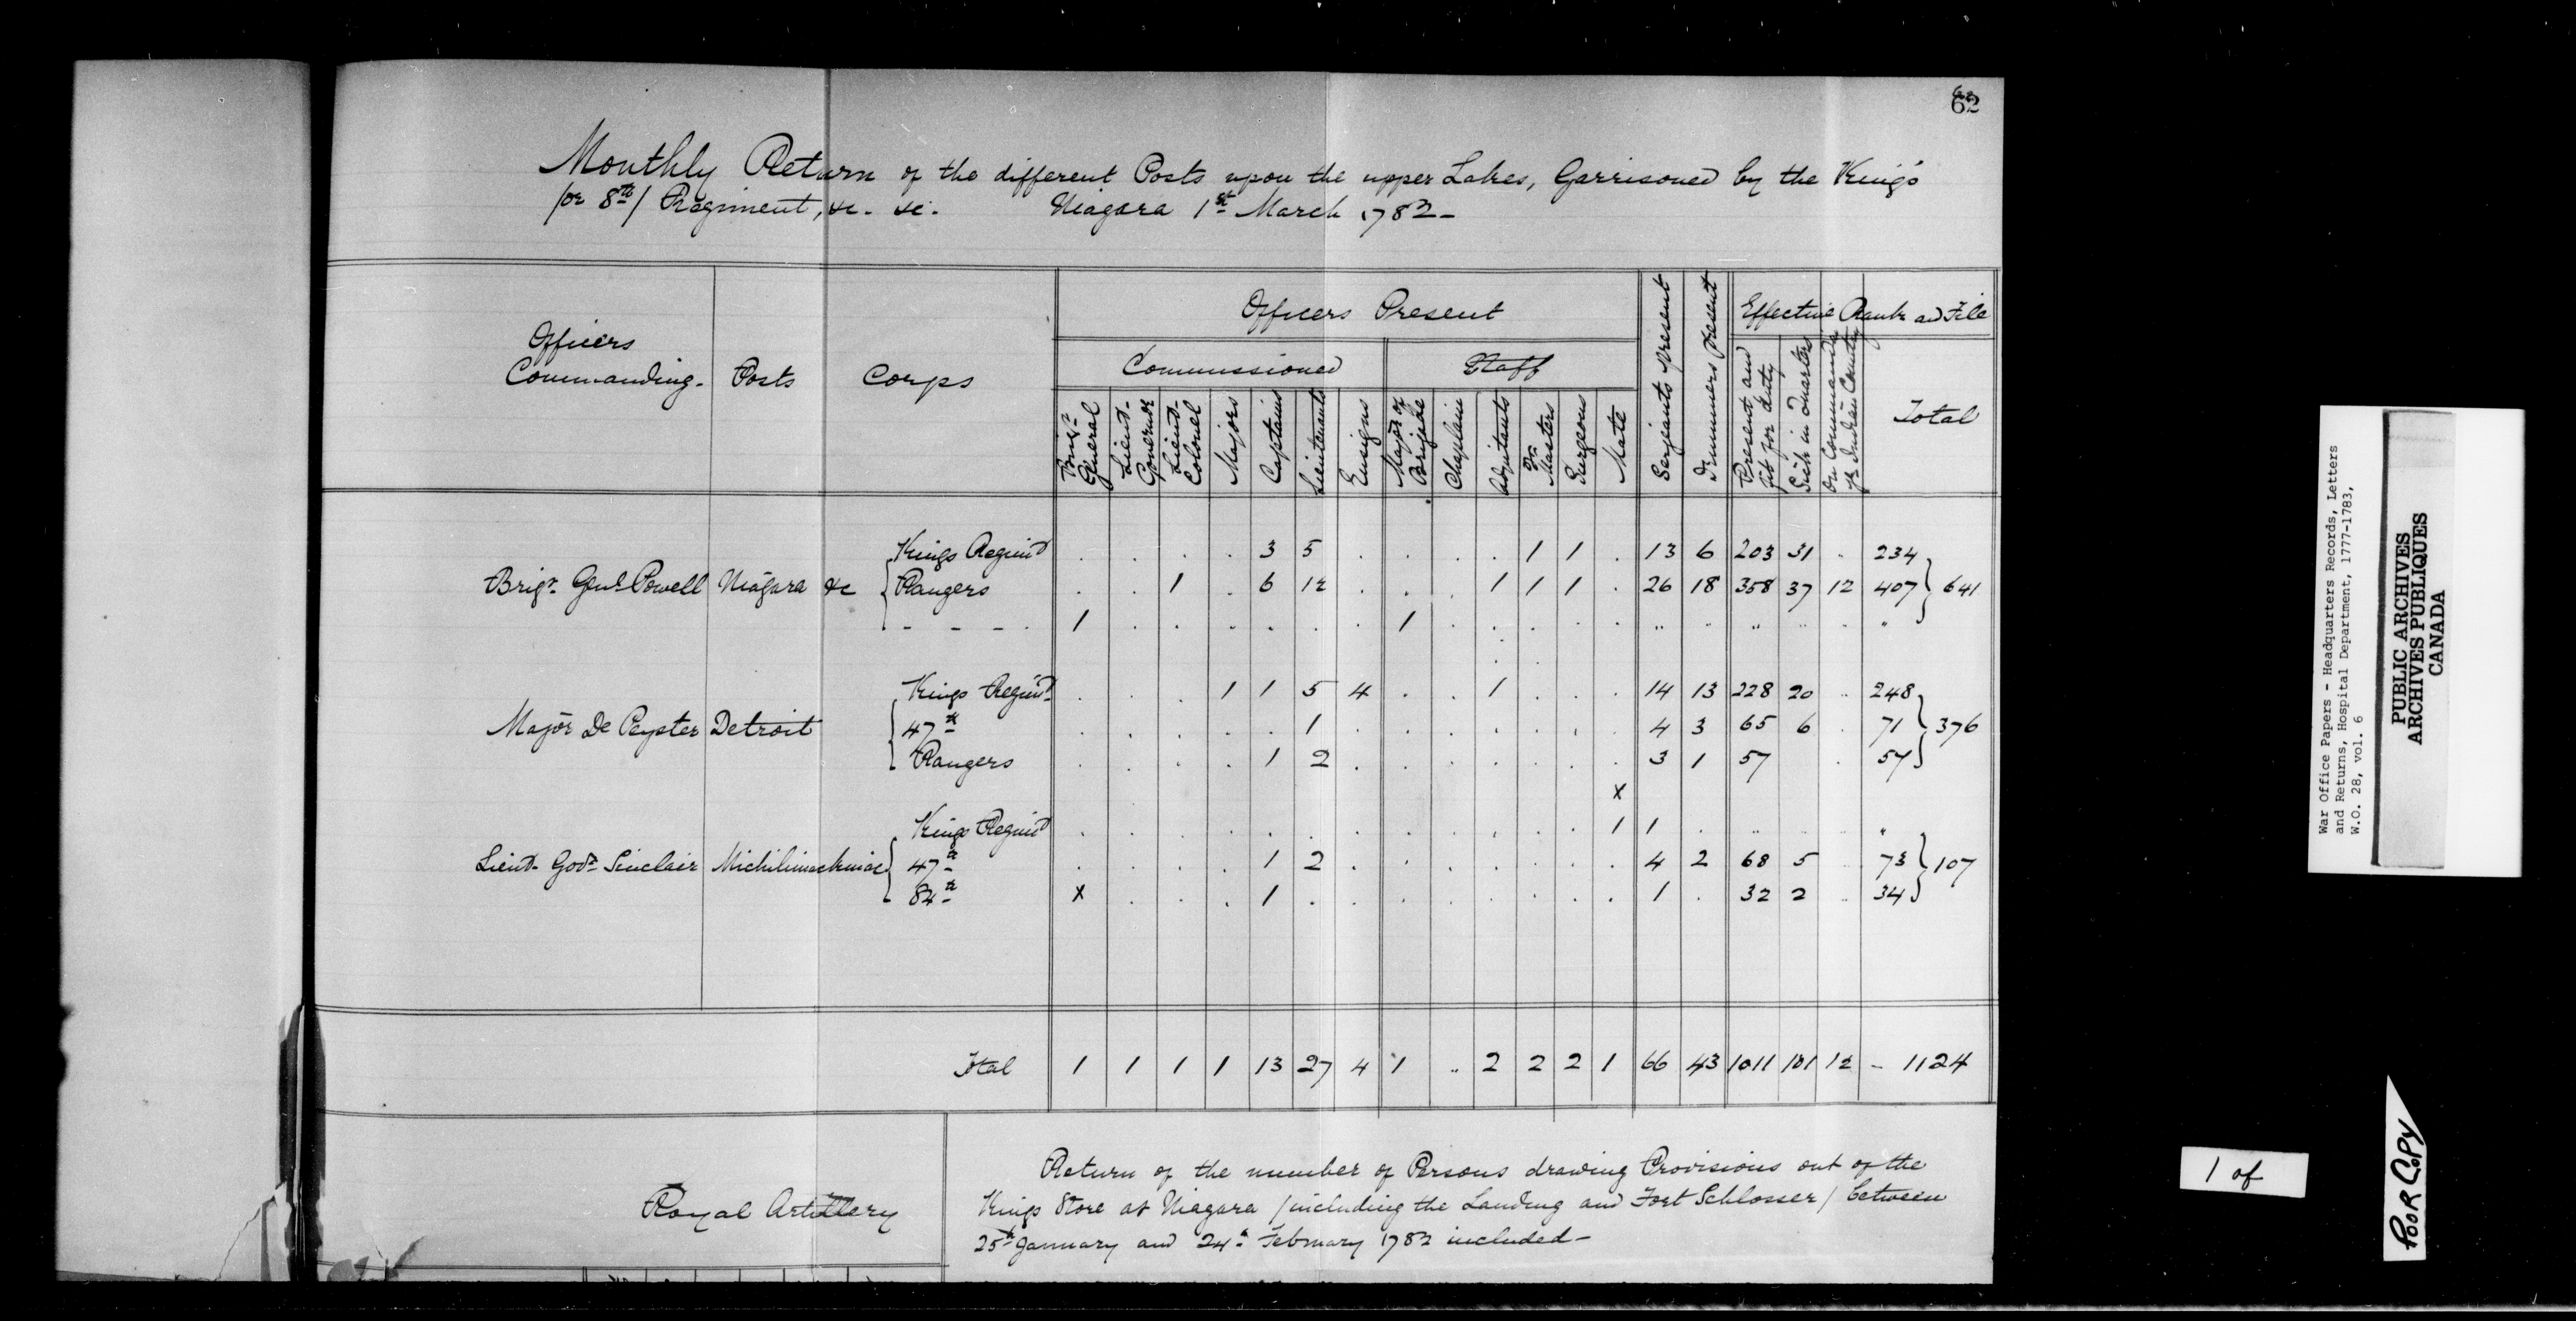 62
Monthly Return of the different Posts upon the upper Lakes, Garrisoned by the King's
/or 8th/ Regiment, &c. &c. Niagara 1st March 1782-
Officers Commanding- Posts Corps Officers Present Serjeants present Drummers present Effective Rank and File
Commissioned Staff Present and fit for duty Sick in Quarters On Command & Indian Country Total
Brigr General Lieut- Governor Lieut- Colonel Majors Captains Lieutenants Ensigns Major of Brigade Chaplain Adjutants Qr Masters Surgeons Mate
Kings Regimt . . . . 3 5 . . . . 1 1 . 13 6 203 31 . 234
Brigr Genl Powell Niagara &c Rangers . . 1 . 6 12 . . . 1 1 1 . 26 18 358 37 12 407 } 641
- - - . 1 . . . . . . 1 . . . . . " " " " . "
Kings Regimt . . . 1 1 5 4 . . 1 . . . 14 13 228 20 " 248
Major De Peyster Detroit 47th . . . . . 1 . . . . . . . 4 3 65 6 . 71 } 376
Rangers . . . . 1 2 . . . . . . . 3 1 57 . 57
x
Kings Regimt . . . . . . . . . . . . 1 1 . " "
Lieut- Govr Sinclair Michilimackinac 47th . . . . 1 2 . . . . . . . 4 2 68 5 73 } 107
84th x . . . 1 . . . . . . . . 1 . 32 2 " 34
Total 1 1 1 1 13 27 4 1 " 2 2 2 1 66 43 1011 101 12 - 1124
Royal Artillery
Return of the number of Persons drawing Provisions out of the
Kings Store at Niagara /including the Landing and Fort Schlosser/ between
25th January and 24th February 1782 included-
War Office Papers - Headquarters Records, Letters
and Returns, Hospital Department, 1777-1783,
W.O. 28, vol. 6
PUBLIC ARCHIVES
ARCHIVES PUBLIQUES
CANADA
1 of
POOR COPY